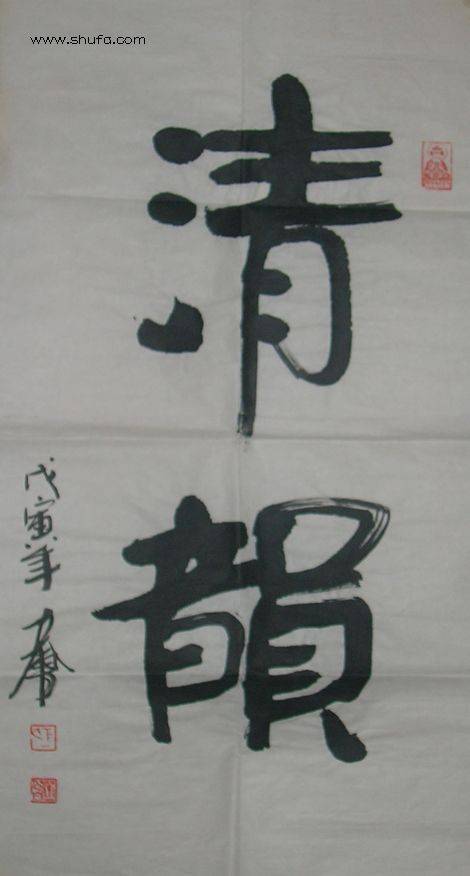 www.shufa.com
清
韻
戊寅年